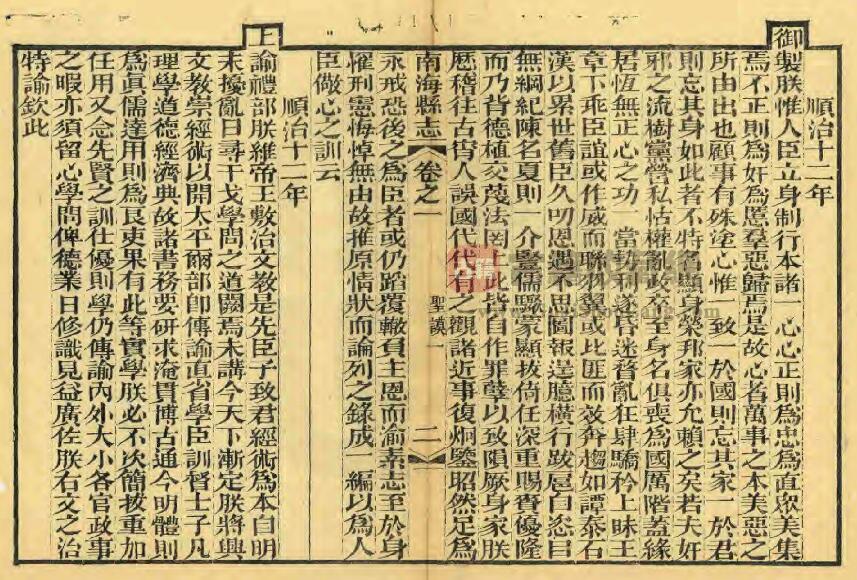 順治十二年
御製朕惟人臣立身制行本諸一心心正則為忠為直眾美集
焉不正則為奸為慝羣惡歸焉是故心者萬事之本美惡之
所由出也顧事有殊途心惟一致一於國則忘其家一於君
則忘其身如此者不特名顯身榮邦家亦允賴之矣若夫奸
邪之流樹黨營私怙權亂政卒至身名俱喪為國厲階蓋緣
居恆無正心之功一當勢利遂昏迷瞀亂狂肆驕矜上昧王
章下乖臣誼或作威而聯羽翼或比匪而效奔趨如譚泰石
漢以累世舊臣久叨恩遇不思圖報逞臆橫行跋扈自恣目
無綱紀陳名夏則一介豎儒驟蒙顯拔倚任深重賜賚優隆
而乃背德植交蔑法罔上此皆自作罪孽以致隕厥身家朕
歷稽往古脅人誤國代代有之觀諸近事復炯鑒昭然足為
南海縣志
卷之一
聖謨一
二
永戒恐後之為臣者或仍蹈覆轍負主恩而渝素志至於身
罹刑憲悔悼無由故推原情狀而論列之錄成一編以為人
臣儆心之訓云
順治十二年
上諭禮部朕維帝王敷治文教是先臣子致君經術為本自明
末擾亂日尋干戈學問之道闕焉未講今天下漸定朕將興
文教崇經術以開太平爾部即傳諭直省學臣訓督士子凡
理學道德經濟典故諸書務要研求淹貫博古通今明體則
為真儒達用則為良吏果有此等實學朕必不次簡拔重加
任用又念先賢之訓仕優則學仍傳諭內外大小各官政事
之暇亦須留心學問俾德業日修識見益廣佐朕右文之治
特諭欽此